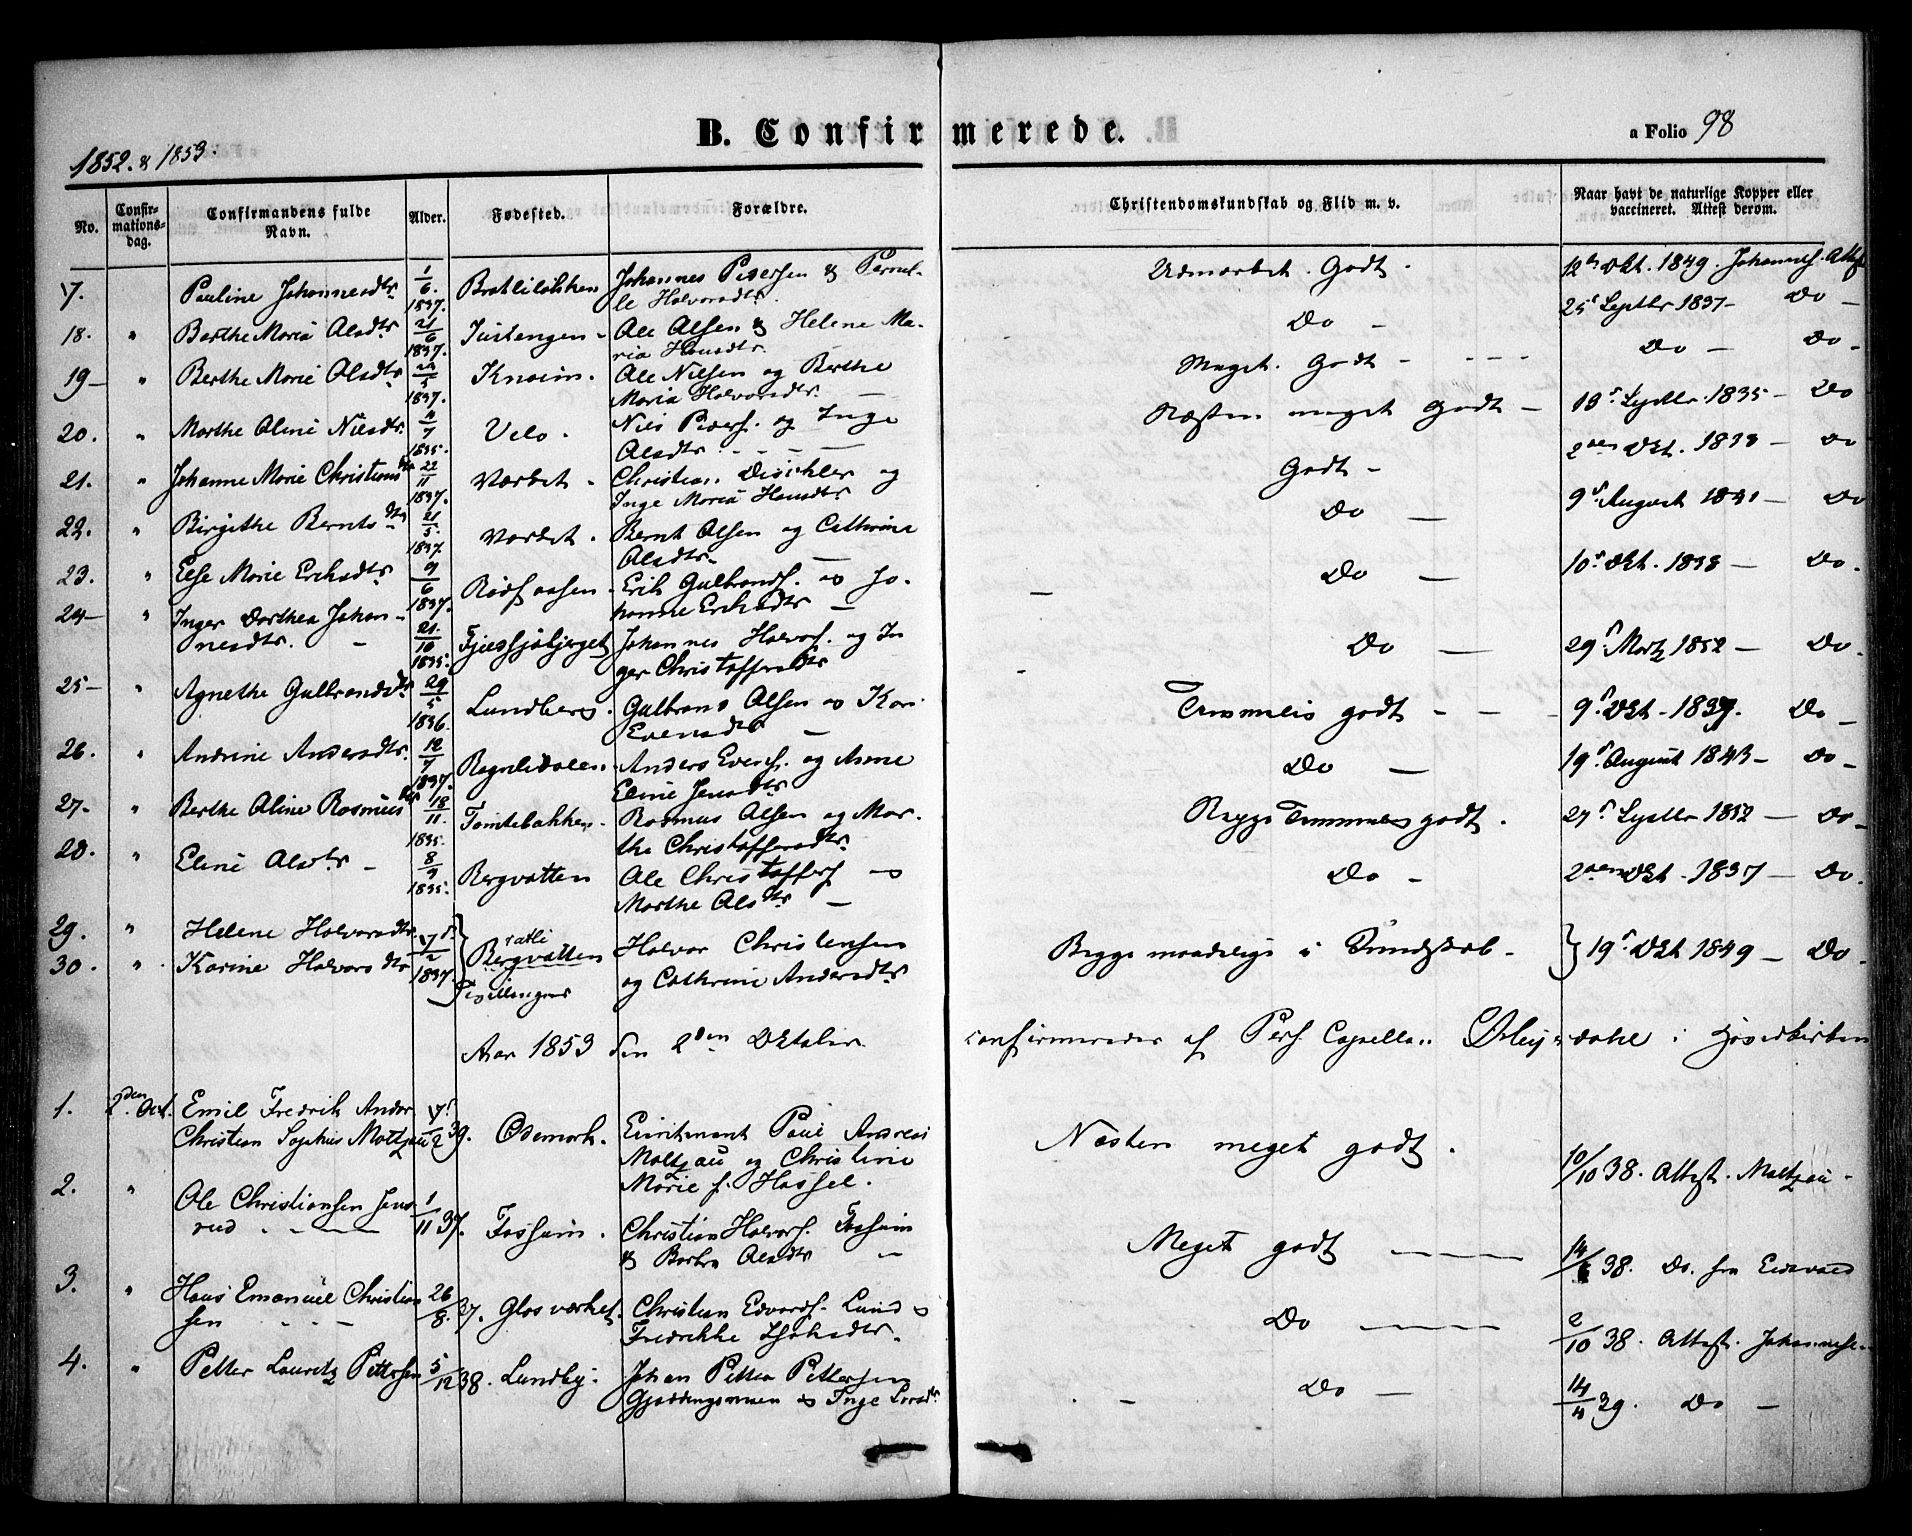 B. Confirmerede.
a Folio 98
1852. & 1853.
No.
Confirmationsdag.
Confirmandens fulde Navn.
Alder.
Fødested.
Forældre.
Christendomskundskab og Flid m. v.
Naar havt de naturlige Kopper eller vaccineret. Attest derom.
7. Pauline Johannesdtr 1/6 1837. Johannes Pedersen & Pernille Halvorsdtr. Udmærket Godt. 12te Okt. 1849. Johannes. Attest
18. " Berthe Maria Olsdtr 21/6 1837. Ole Olsen & Helene Maria Hansdtr. Do — 25 Septbr 1837 — Do —
19 — " Berthe Marie Olsdtr /5 1837. Knoim. Ole Nilsen og Berthe Maria Halvorsdtr. — Meget. Godt - - - - Do — Do —
20. " Marthe Oline Nilsdtr. /7 1835. Velo. Nils Peders. og Inge Olsdtr. Næsten meget Godt — Septbr. 1835 — Do
21. " Johanne Marie Christiansdtr 22/11 1837. Værket. Christian Dischler og Inge Maria Hansdtr Godt — 2den Okt. 1838 — Do
22. " Birgithe Berntsdtr 21/5 1837. Værket. Bernt Olsen og Cathrine Olsdtr. — Do — 9 August 1841 — Do
23. " Else Marie Ericksdtr. 9/6 1837. Rødsaasen. Erik Gulbrands. og Johanne Ericksdtr — Do — 10 Okt. 1838 — Do.
24 — " Inger Dorthea Johannesdtr. — 21/10 1835. Johannes Halvors. og Inger Christoffersdtr Do — 29 Martz 1852 — Do.
25 — " Agnethe Gulbrandsdtr 29/5 1836. Lundberg. Gulbrand Olsen og Kari Evensdtr — Temmelig godt - - - 9 Okt. 1837. Do —
26. " Andrine Andersdtr. 12/7 1837. Anders Evens. og Anne Eline Jensdtr Do — 19 August 1843 — Do —
27. " Berthe Oline Rasmusdtr 18/11 1835. Tomtebakken. Rasmus Olsen og Marthe Christoffersdtr. Begge Temmelig godt. 27 Septbr 1852 — Do —
28. " Eline Olsdtr — 8/9 1835. Bergvatten Ole Christoffers. og Marthe Olsdtr — Do — 2den Okt. 1837 — Do.
29. " Helene Halvorsdtr
30. " Karine Halvorsdtr 7/2 1837. Bergvatten Tvillinger Halvor Christensen og Cathrine Andersdtr. Begge maadelige i Kundskab. 19 Okt 1849 — Do.
Aar 1853 den 2den Oktober confirmerede af Pers. Capellan i Hovedkirken
1. 2den Oct. Emil Fredrik Andor Christian Sophus Moltzau 7/2 39. Ødemark. Lieutenant Paul Andreas Moltzau og Christine Marie f. Hassel. Næsten meget godt. 10/10 38. Attest. Moltzau.
2. " Ole Christiansen Jensrud 1/11 37. Fossum. Christian Halvors. Fossum & Barbra Olsdtr — Meget godt — — — 14/6 38. Do. fra Eidsvold
3. " Hans Emanuel Christiansen 26/8. 37. Glasværket. Christian Edvards. Lund og Fredrikke Do — — — 2/10 38. Attest. Johannese.
4. " Petter Lauritz Pettersen 5/12 38. Lundby. Johan Petter Pettersen Gjøddingsmoen og Inge Larsdtr Do — 14/4 39. Do —